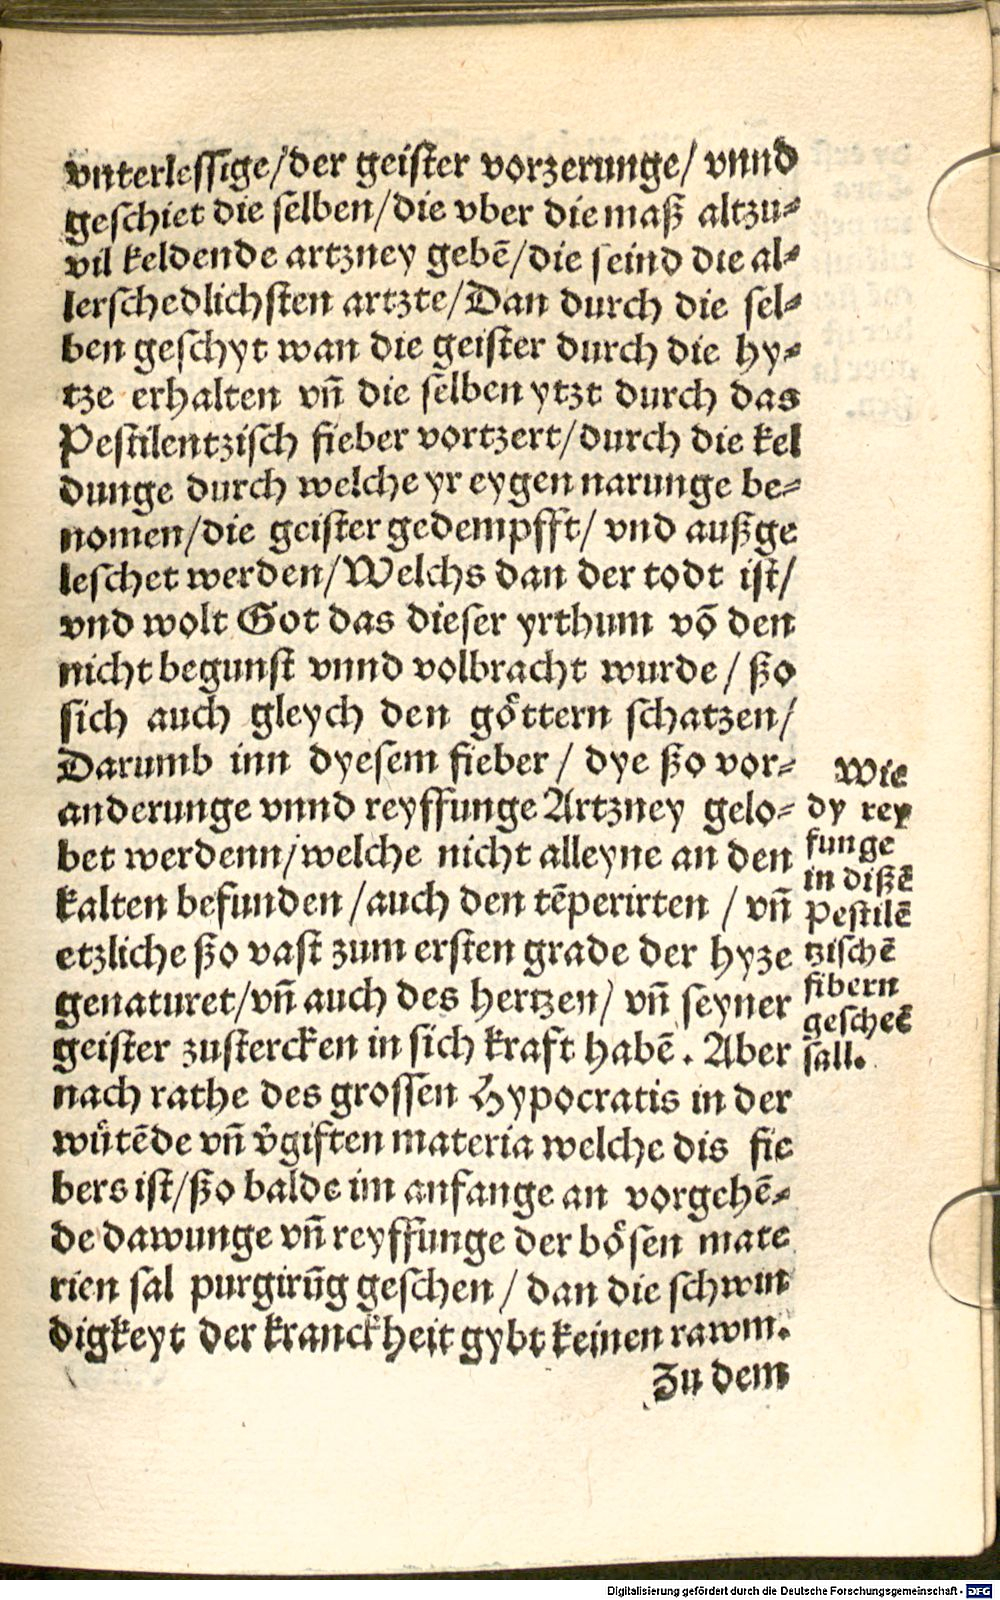 vnterlessige/der geister vorzerunge/ vnnd
geschiet die selben/die vber die maß altzu⸗
vil keldende artzney gebē/die seind die al⸗
lerschedlichsten artzte/Dan durch die sel⸗
ben geschyt wan die geister durch die hy⸗
tze erhalten vñ die selben ytzt durch das
Pestilentzisch fieber vortzert/durch die kel
dunge durch welche yr eygen narunge be⸗
nomen/die geister gedempfft/ vnd außge
leschet werden/Welchs dan der todt ist/
vnd wolt Got das dieser yrthum vō den
nicht begunst vnnd volbracht wurde/ ßo
sich auch gleych den göttern schatzen/
Darumb inn dyesem fieber/ dye ßo vor⸗
anderunge vnnd reyffunge Artzney gelo⸗
bet werdenn/welche nicht alleyne an den
kalten befunden/auch den tēperirten/ vñ
etzliche ßo vast zum ersten grade der hyze
genaturet/vñ auch des hertzen/ vñ seyner
geister zustercken in sich kraft habē. Aber
nach rathe des grossen Hypocratis in der
wütēde vñ v̄giften materia welche dis fie
bers ist/ßo balde im anfange an vorgehē⸗
de dawunge vñ reyffunge der bösen mate
rien sal purgirūg geschen/ dan die schwin
digkeyt der kranckheit gybt keinen rawm.
Zu dem
Wie
dy rey
funge
in dißē
Pestilē
tzischē
fibern
gescheē
sall.
Digitalisierung gefördert durch die Deutsche Forschungsgemeinschaft - DFG